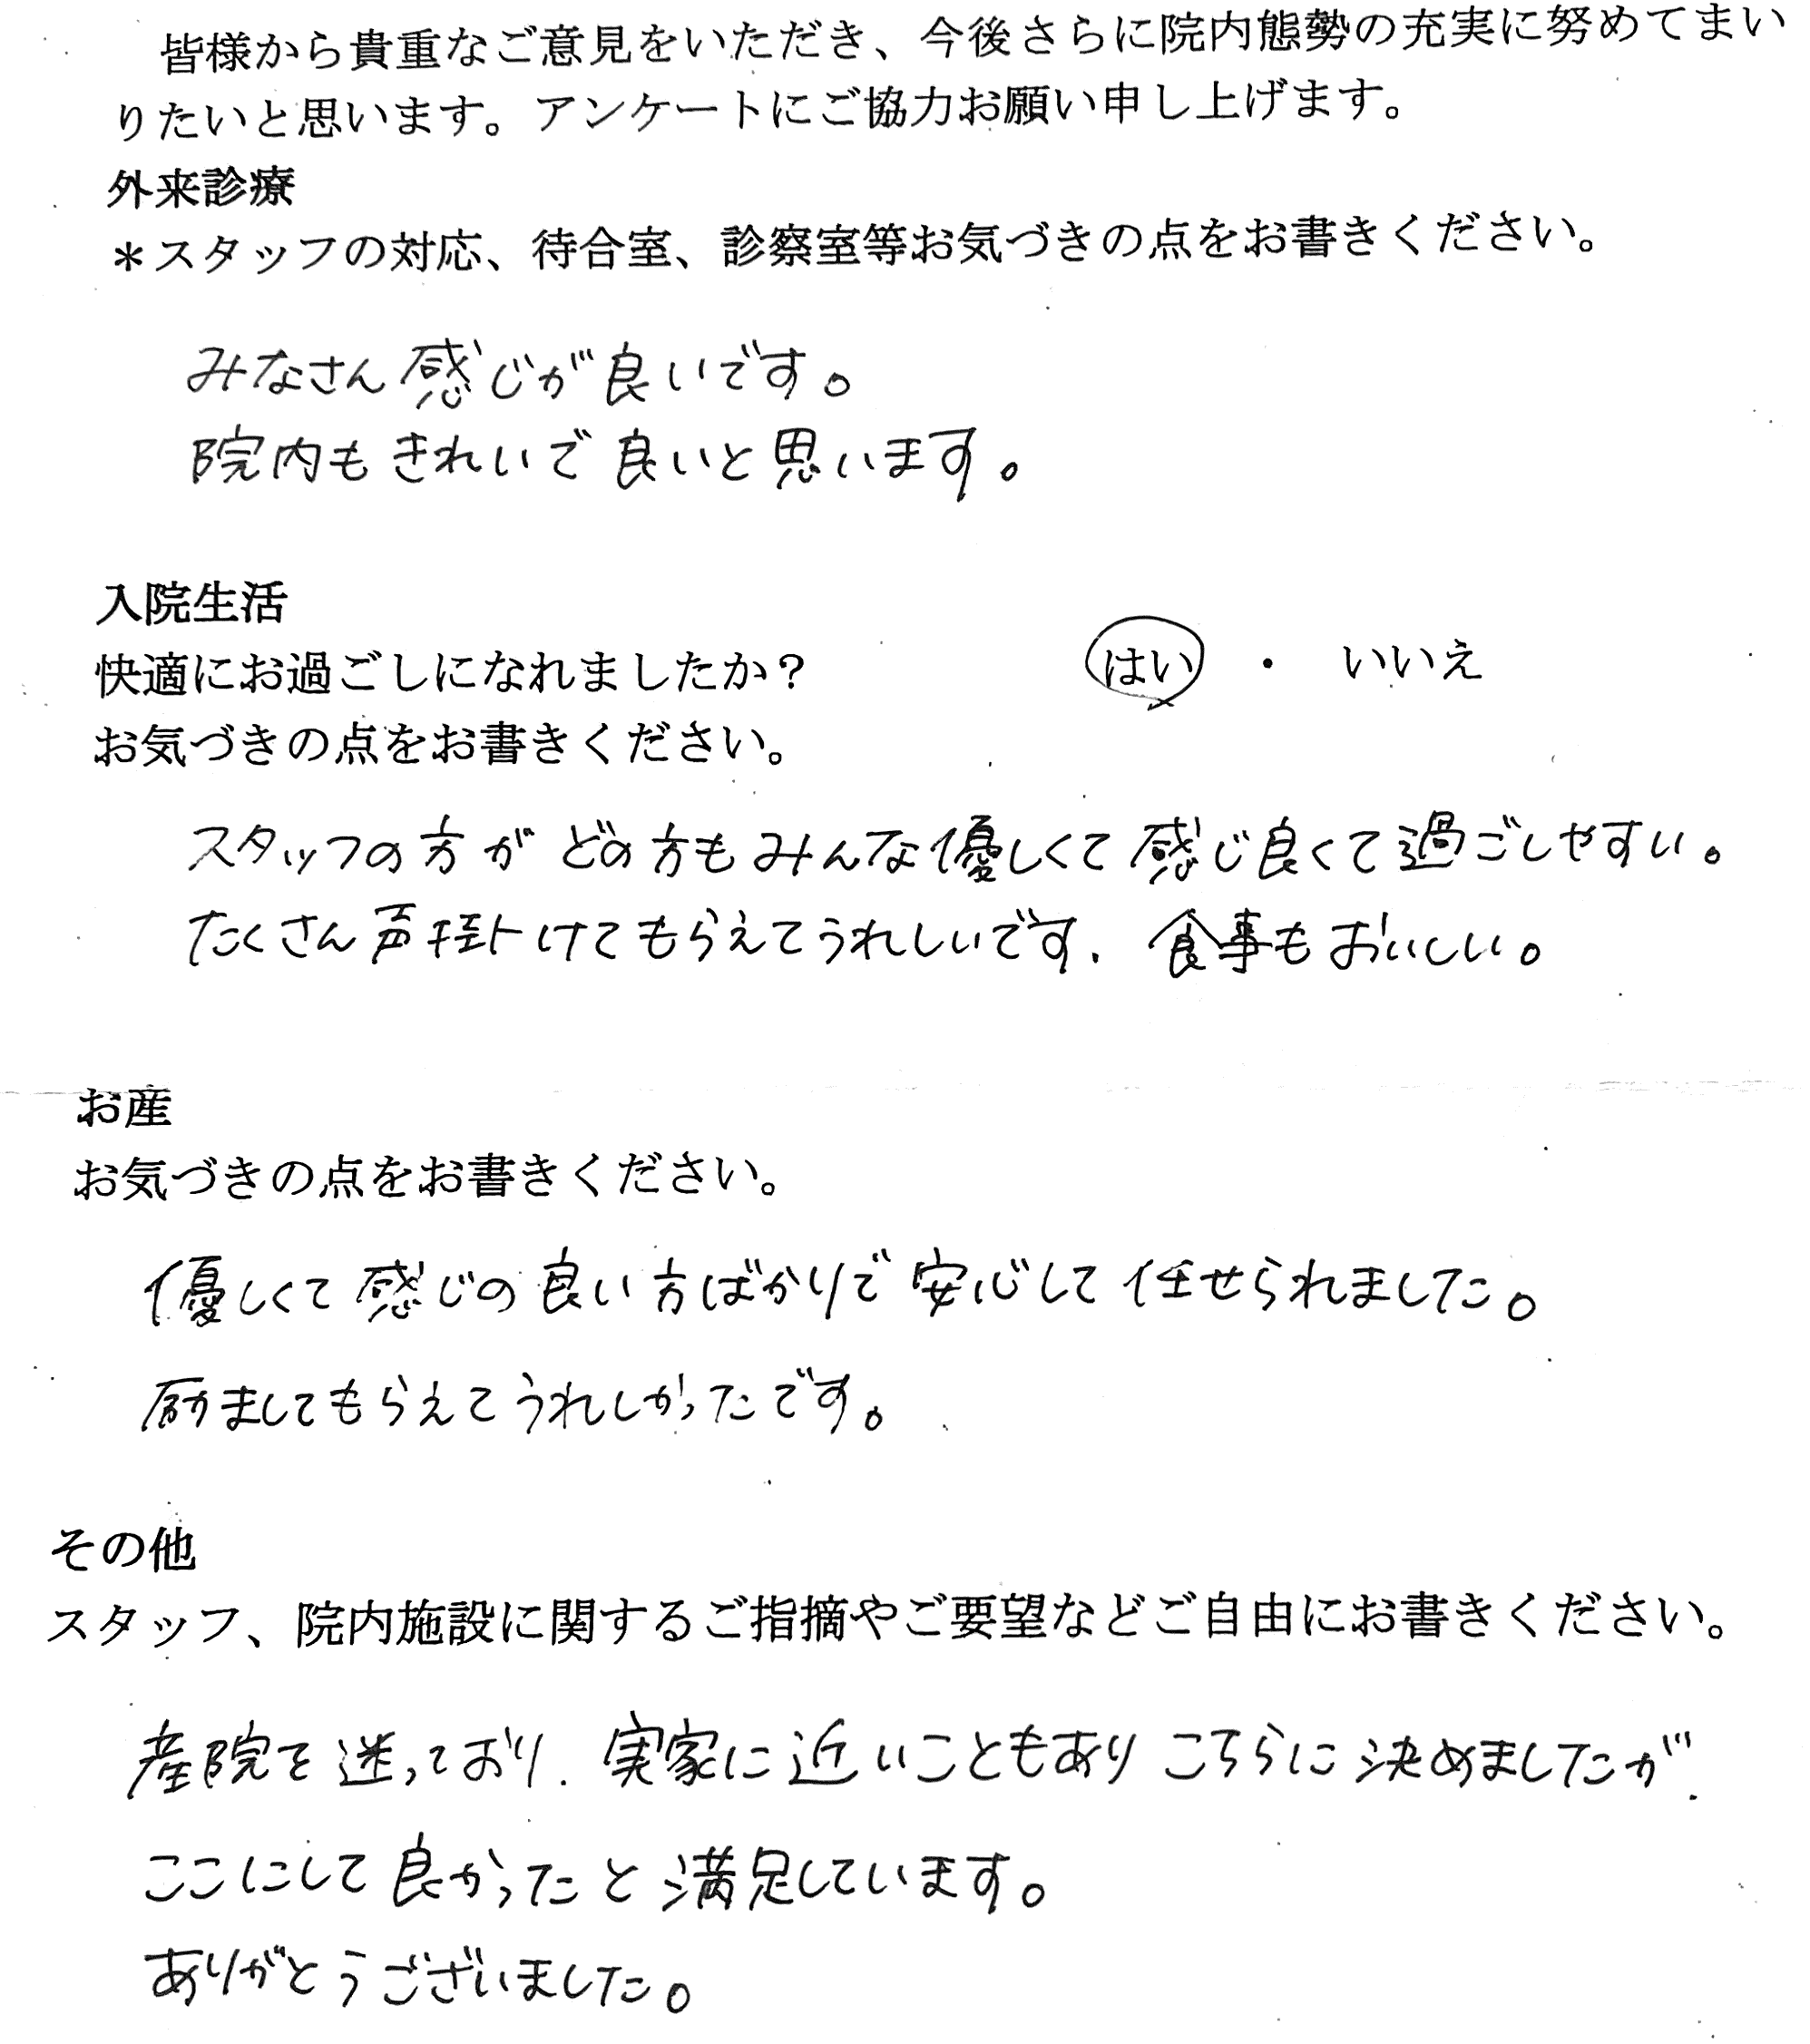 皆様から貴重なご意見をいただき、今後さらに院内態勢の充実に努めてまい
りたいと思います。アンケートにご協力お願い申し上げます。
外来診療
＊スタッフの対応、待合室、診察室等お気づきの点をお書きください。
みなさん感じが良いです。
院内もきれいで良いと思います。
入院生活
快適にお過ごしになれましたか？ はい ・ いいえ
お気づきの点をお書きください。
スタッフの方がどの方もみんな優しくて感じ良くて過ごしやすい。
たくさん声掛けてもらえてうれしいです、食事もおいしい。
お産
お気づきの点をお書きください。
優しくて感じの良い方ばかりで安心して任せられました。
励ましてもらえてうれしかったです。
その他
スタッフ、院内施設に関するご指摘やご要望などご自由にお書きください。
産院を迷っており、実家に近いこともありこちらに決めましたが、
ここにして良かったと満足しています。
ありがとうございました。